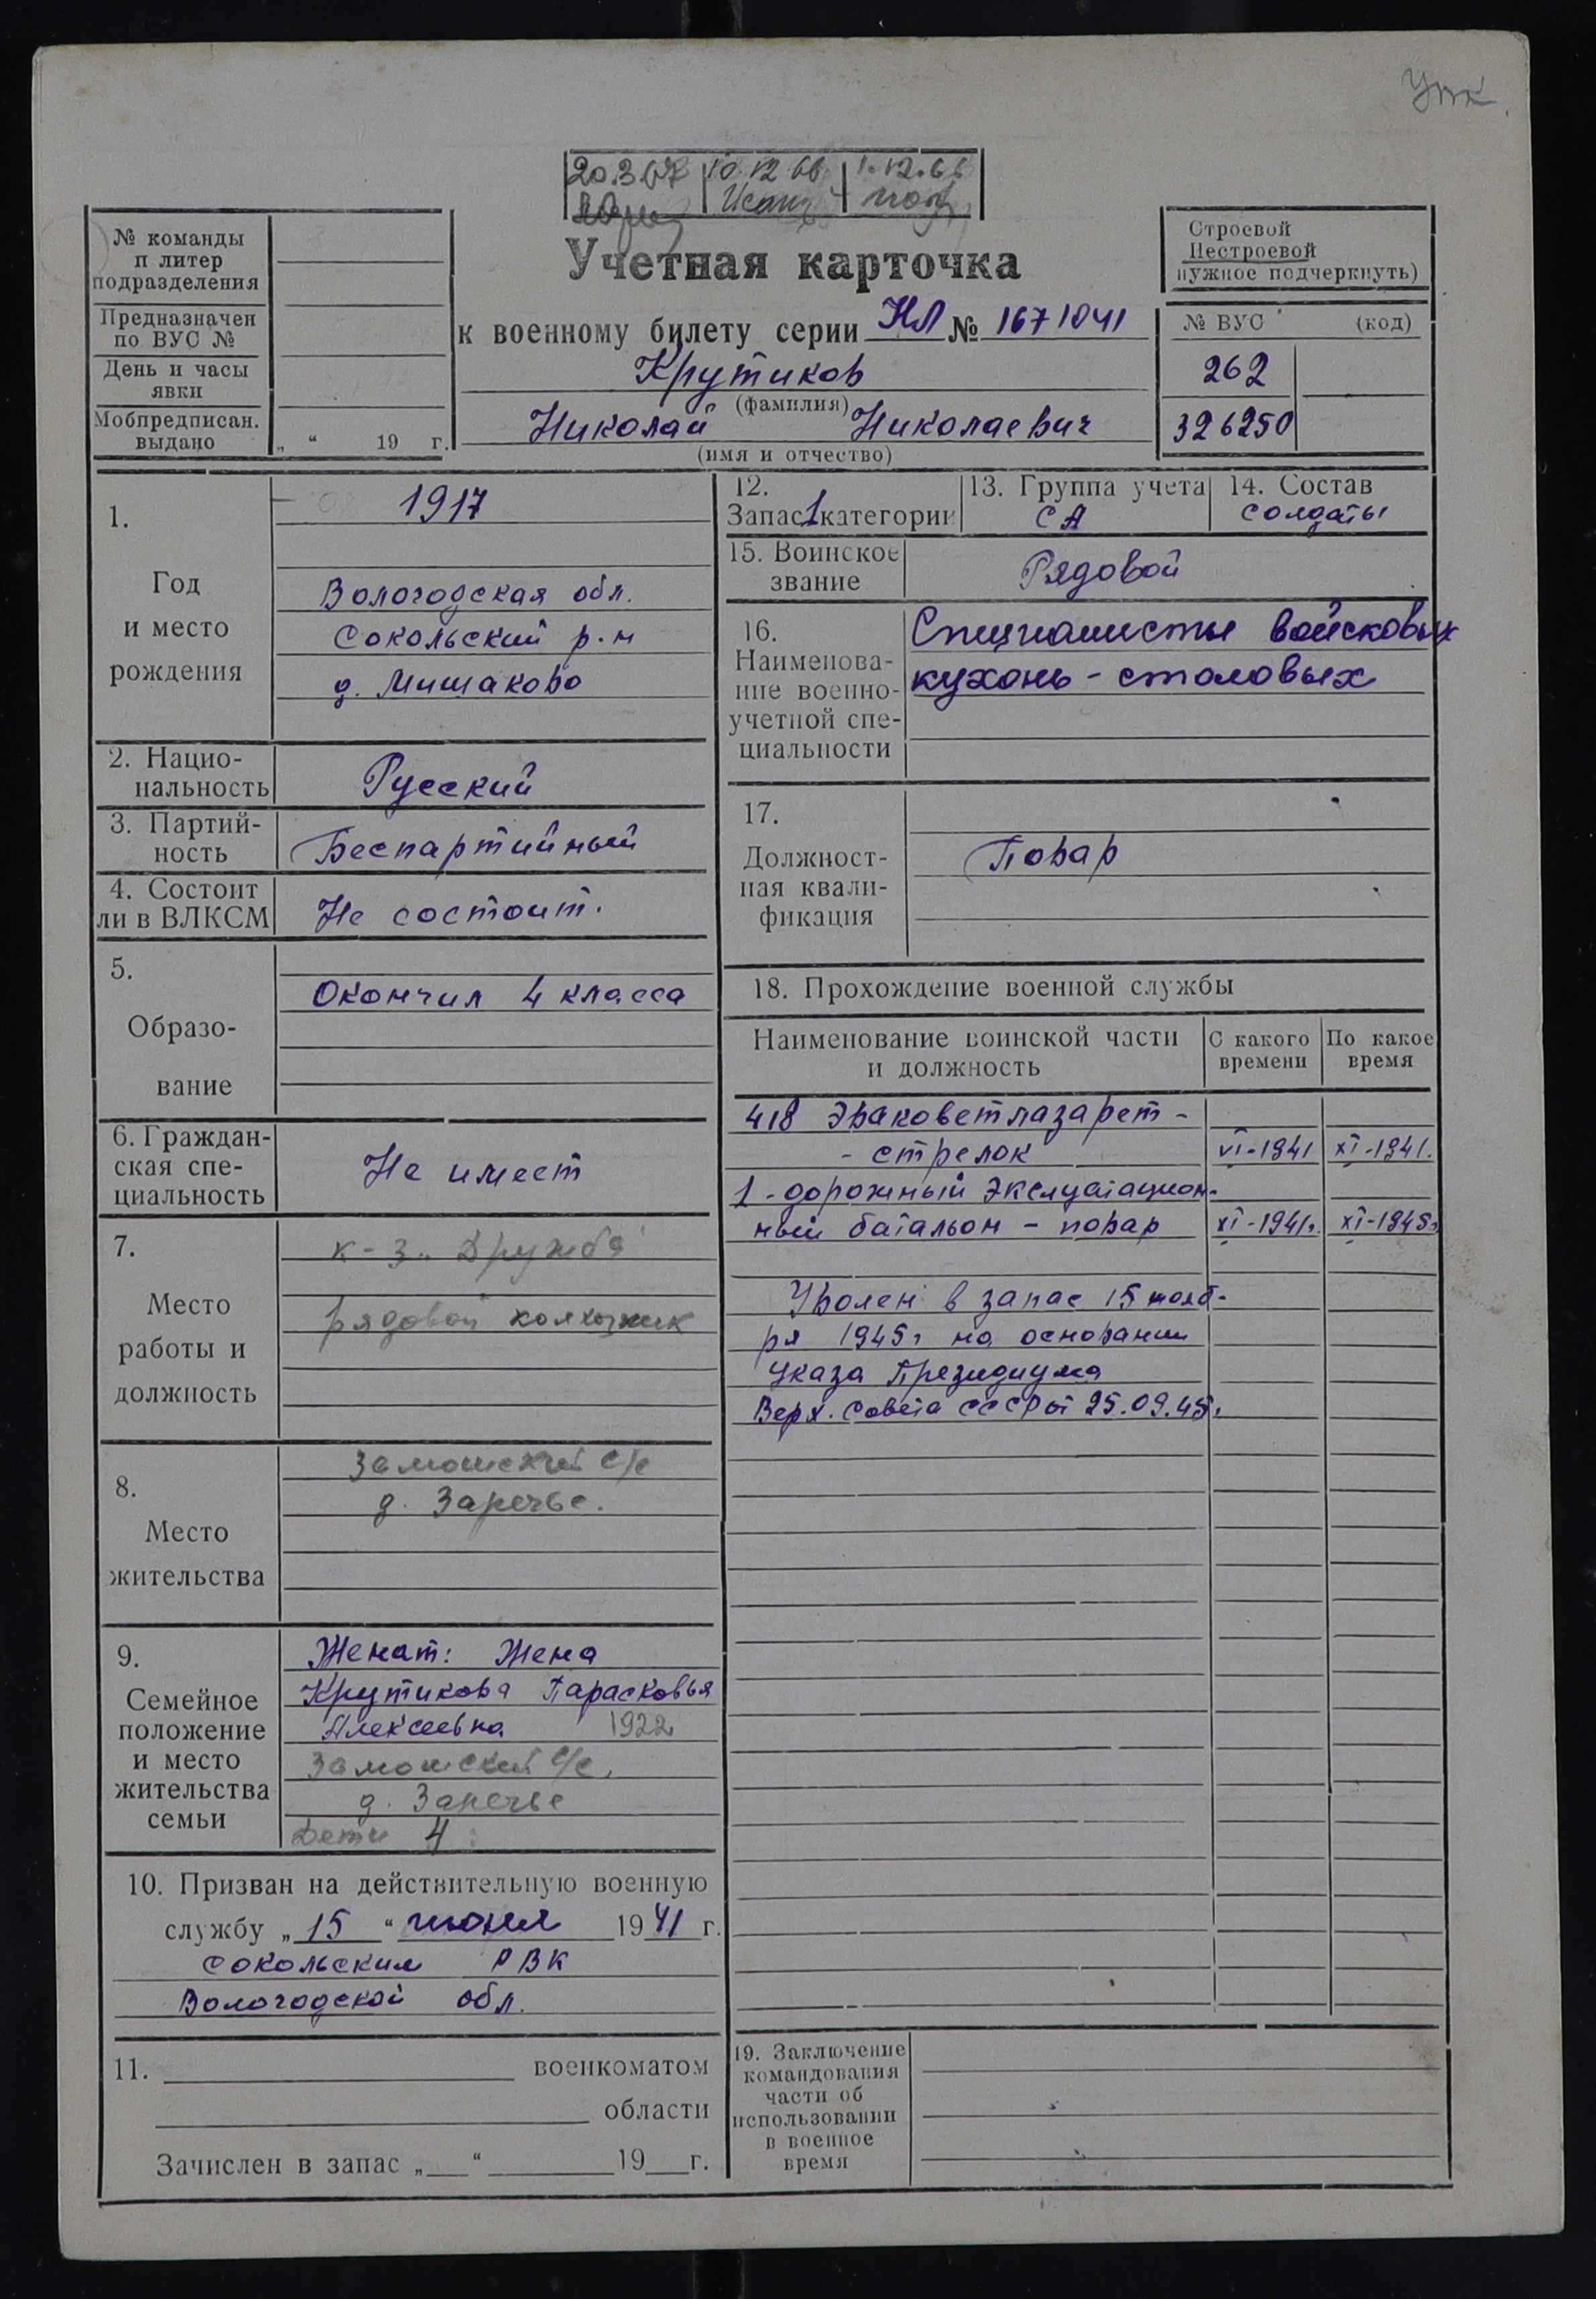 УПК
20.3.67 10.12.66 1.12.66
Строевой
Нестроевой
нужное подчеркнуть)
№ команды
п литер
подразделения
Предназначен
по ВУС №
День и часы
явки
Мобпредписан.
выдано „ “ 19 г.
Учетная карточка
к военному билету серии НЛ № 1671041
Крутиков
(фамилия)
Николай Николаевич
(имя и отчество)
№ ВУС (код)
262
326250
1.
Год
и место
рождения
1917
Вологодская обл.
Сокольский р-н
д. Мишаково
2. Нацио-
нальность
Русский
3. Партий-
ность
Беспартийный
4. Состоит
ли в ВЛКСМ
Не состоит.
5.
Образо-
вание
Окончил 4 класса
6. Граждан-
ская спе-
циальность
Не имеет
7.
Место
работы и
должность
к-з „Дружба
рядовой колхозник
8.
Место
жительства
Замошский с/с
д. Заречье.
9.
Семейное
положение
и место
жительства
семьи
Женат: Жена
Крутикова Парасковья
Алексеевна 1922
Замошский с/с,
д. Заречье
Дети 4
10. Призван на действительную военную
службу „15“ июня 1941 г.
Сокольским РВК
Вологодской обл.
11. военкоматом
области
Зачислен в запас „ “ 19 г.
12.
Запас 1 категории
13. Группа учета
СА
14. Состав
солдаты
15. Воинское
звание
Рядовой
16.
Наименова-
ние военно-
учетной спе-
циальности
Специалисты войсковых
кухонь - столовых
17.
Должност-
ная квали-
фикация
Повар
18. Прохождение военной службы
Наименование воинской части
и должность
С какого
времени
По какое
время
418 Эваковетлазарет -
- стрелок VI-1941 XI-1941.
1 - дорожный эксплуатацион-
ный батальон - повар XI-1941г. XI-1945г
Уволен в запас 15 нояб-
ря 1945г на основании
Указа Президиума
Верх. Совета СССР от 25.09.45г.
19. Заключение
командования
части об
использовании
в военное
время